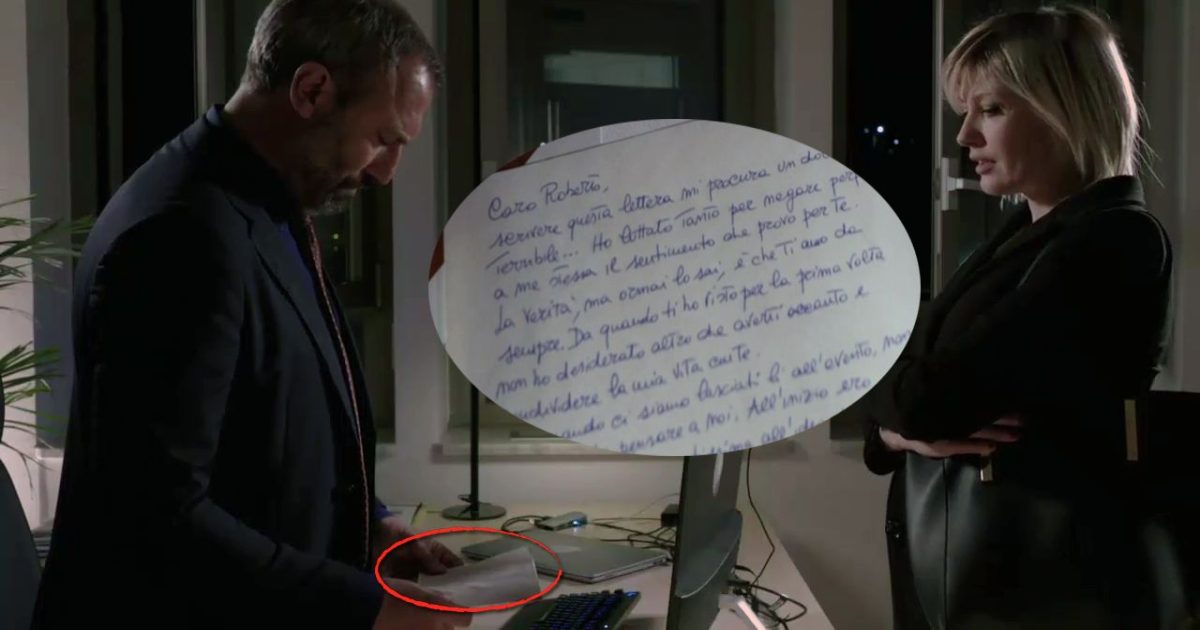 Caro Roberto,
scrivere questa lettera mi procura un
terribile... Ho lottato tanto per negare
a me stessa il sentimento che provo per te.
La verità, ma ormai lo sai, è che ti amo da
sempre. Da quando ti ho visto per la prima volta
non ho desiderato altro che averti accanto e
condividere la mia vita con te.
ci siamo lasciati lì all'evento, non
pensare a noi. All'inizio ero